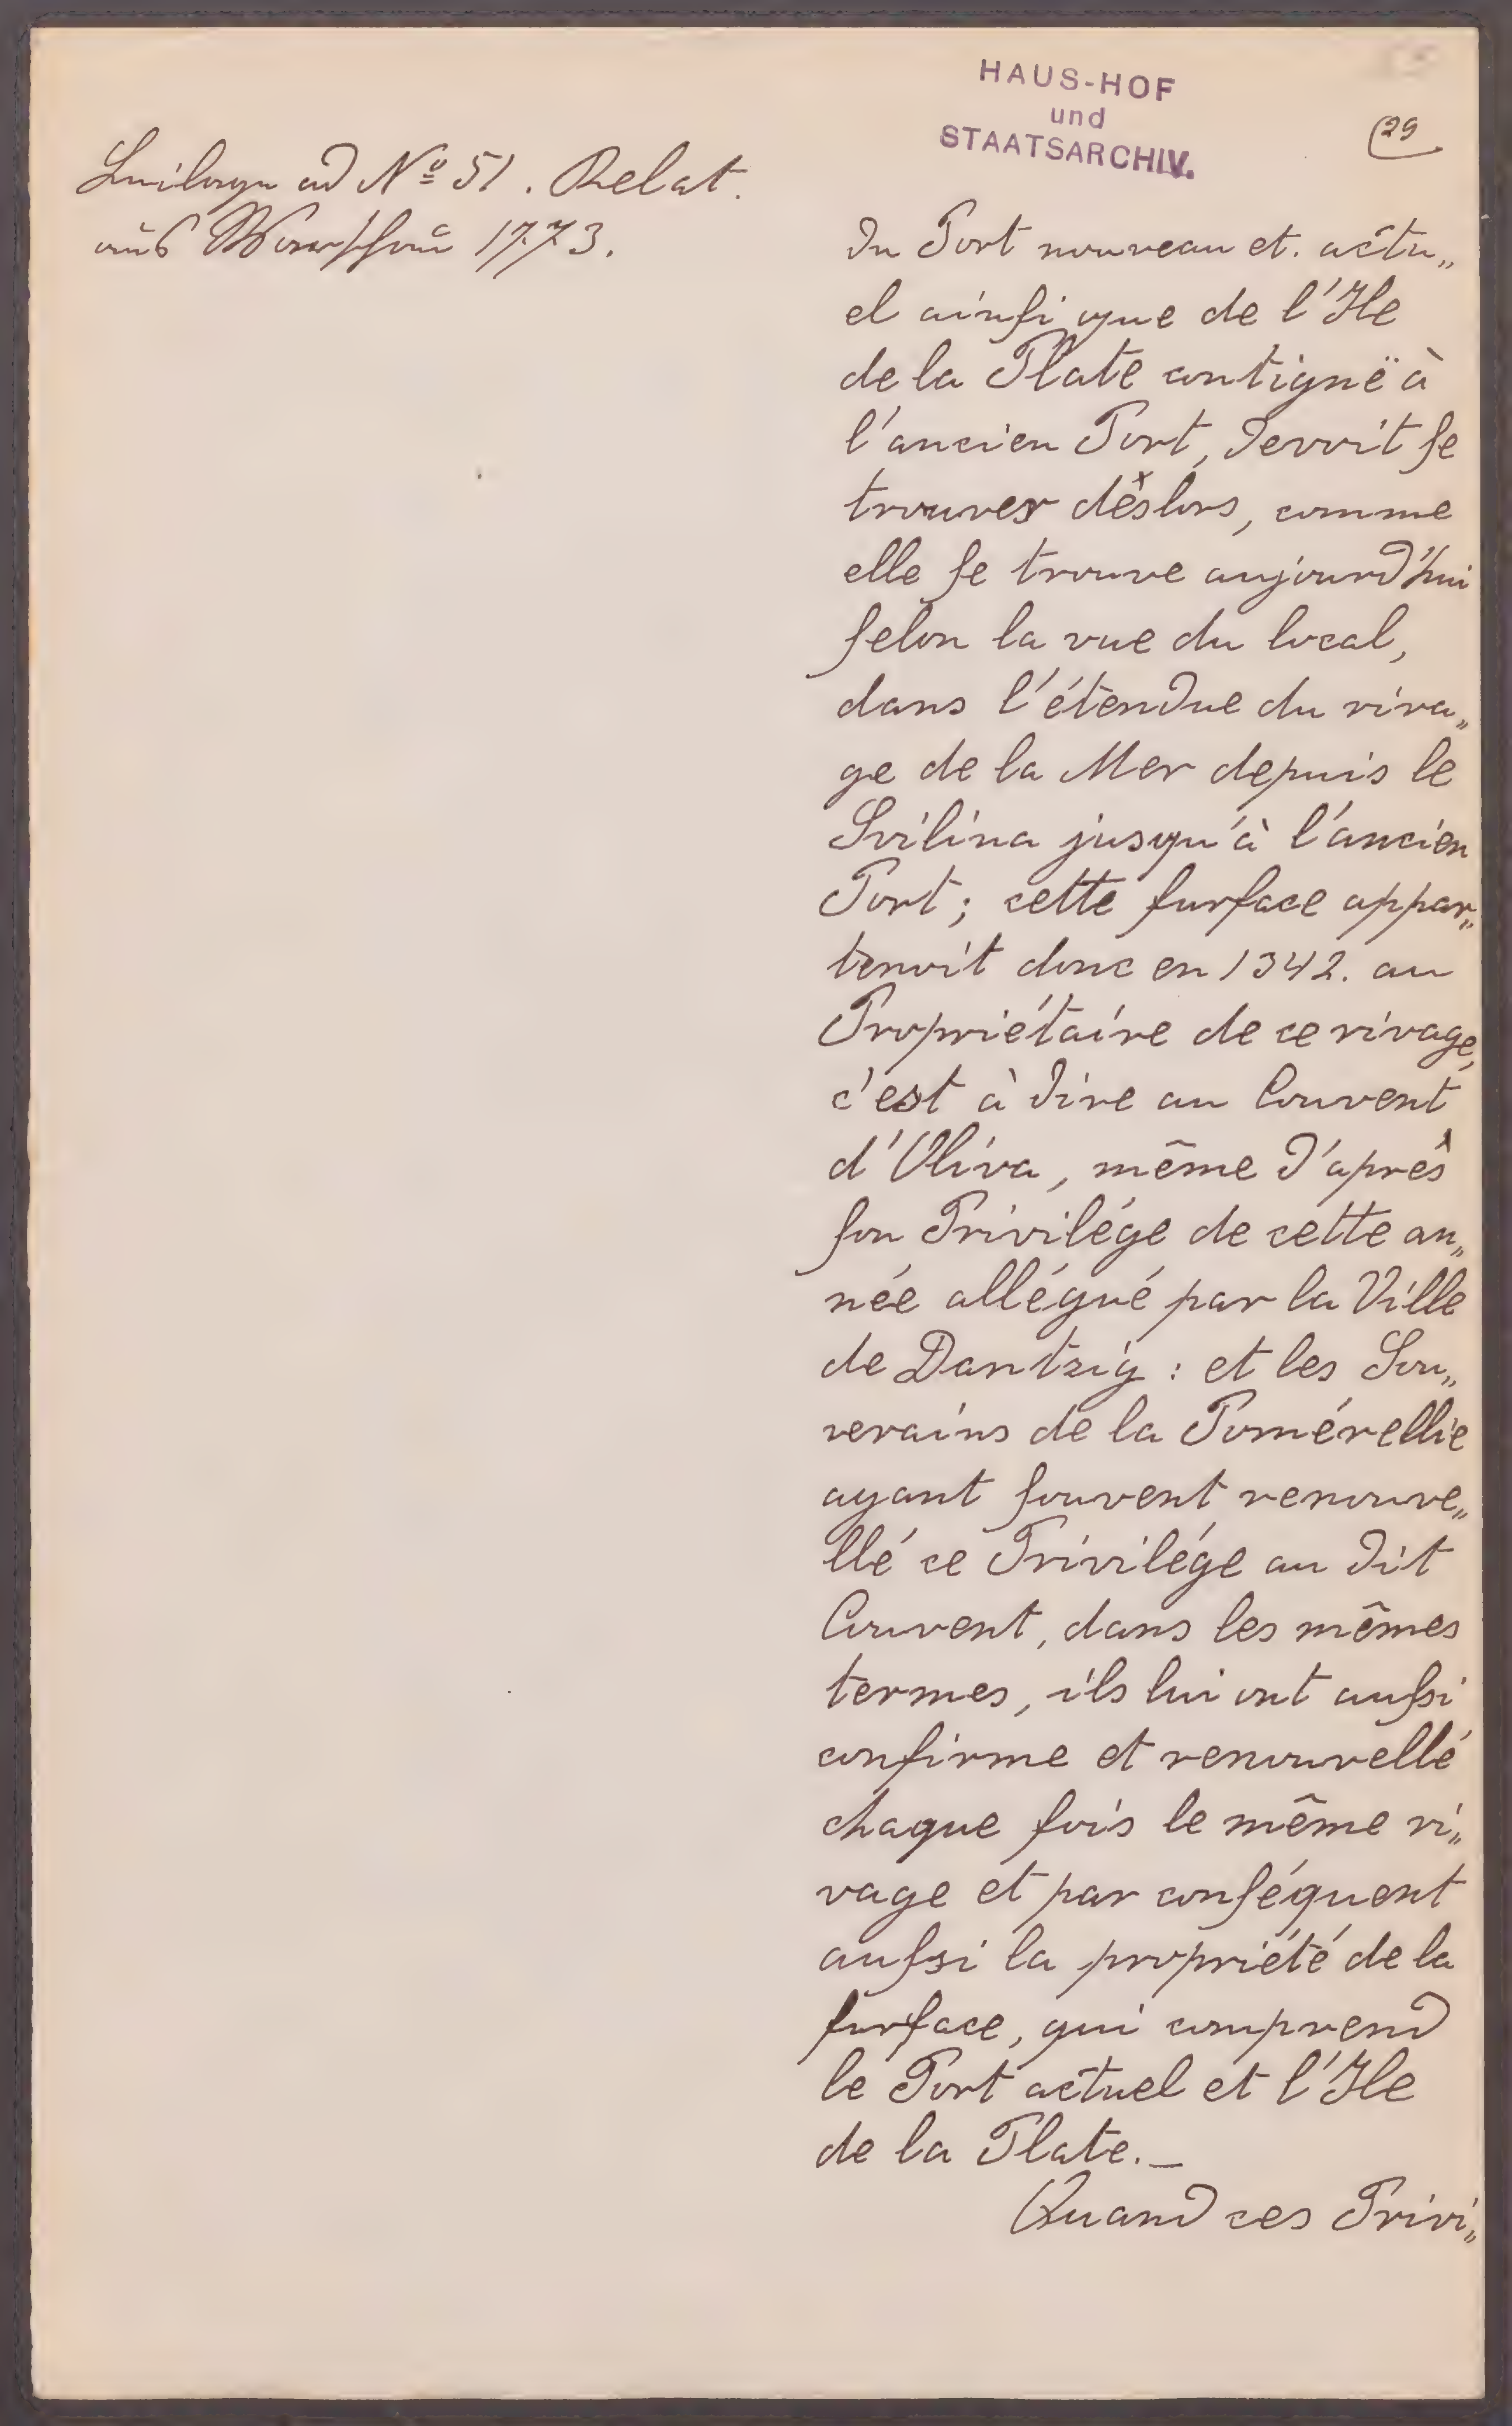 HAUS-HOF
und
STAATSARCHIV.
29
Beilage ad Nº 51. Relat.
aus Warschau 1773.
du Port nouveau et. actu„
el ainsi que de l'Ile
de la Plate contiguë à
l'ancien Port, devoit se
trouver dèslors, comme
elle se trouve aujourd'hui
selon la vue du local,
dans l'étendue du riva„
ge de la Mer depuis le
jusqu'à l'ancien
Port; cette surface appar„
tenoit donc en 1342. au
Propriétaire de ce rivage,
c'est à dire au Couvent
d'Oliva, même d'après
son Privilége de cette an„
née allégué par la Ville
de Dantzig : et les Sou„
verains de la Pomérellie
ayant souvent renouve„
llé ce Privilége au dit
Couvent, dans les mêmes
termes, ils lui ont aussi
confirme et renouvellé
chaque fois le même ri„
vage et par conséquent
aussi la propriété de la
surface, qui comprend
le Port actuel et l'Ile
de la Plate._
Quand ces Privi„